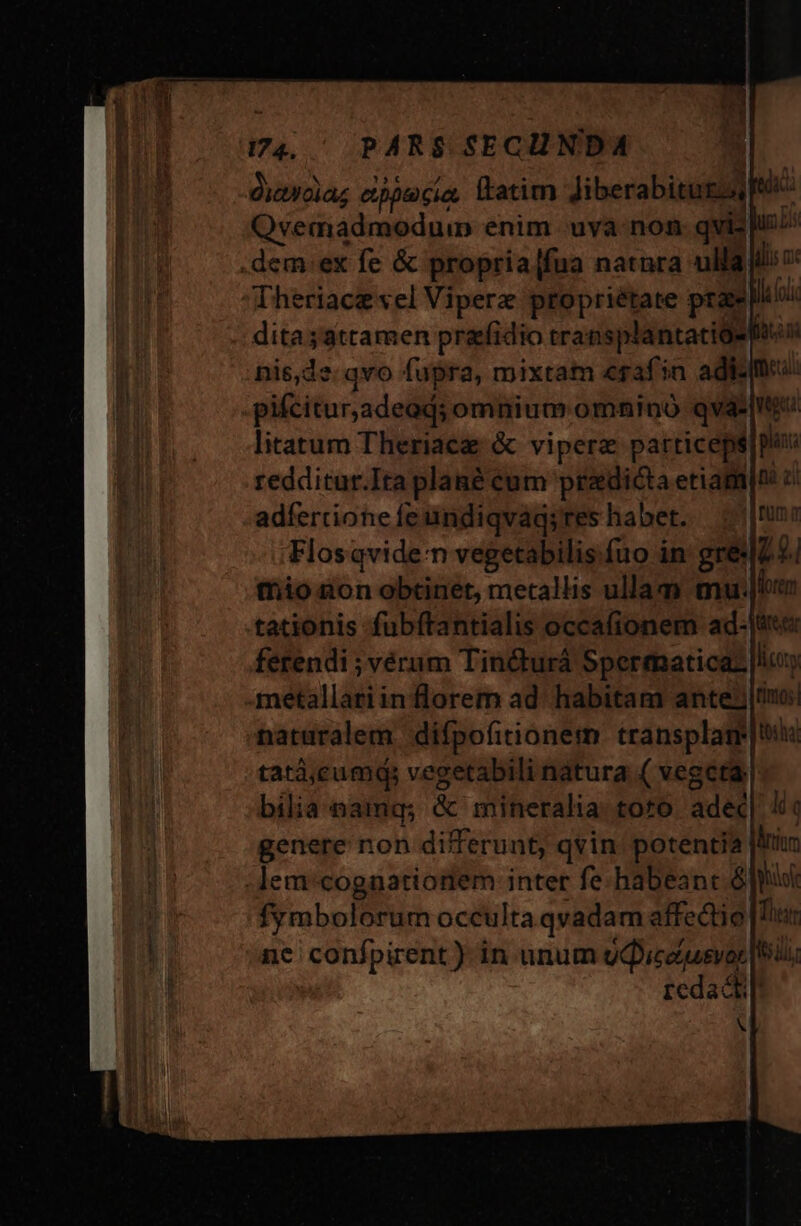 174. PARS SECUNDA
διανοίας ἀῤῥωςία, ſtatim liberabitur.
Qvemadmodum enim uva non qvi-
dem ex ſe & propria ſua natura ulla
Theriacæ vel Viperæ propriétate præ-
dita; attamen præſidio transplantatio-
nis, de qvo ſupra, mixtam craſin adi-
piſcitur, adeoq; omnium omninò qva-
litatum Theriacæ & viperæ particeps
redditur. Ita planè cum prædicta etiam
adſertione ſe undiqvaq; res habet.
Flos qvidem vegetabilis ſuo in gre-
mio non obtinet, metallis ullam mu-
tationis ſubſtantialis occaſionem ad-
ferendi; vérum Tincturâ Spermatica
metallari in florem ad habitam ante
naturalem diſpoſitionem transplan-
tatâ, eumq; vegetabili natura ( vegeta-
bilia namq; & mineralia toto adeò
genere non differunt, qvin potentia-
lem cognationem inter ſe habeant &
ſymbolorum occulta qvadam affectio-
ne conſpirent ) in unum ὑφιςάμενον
redacti